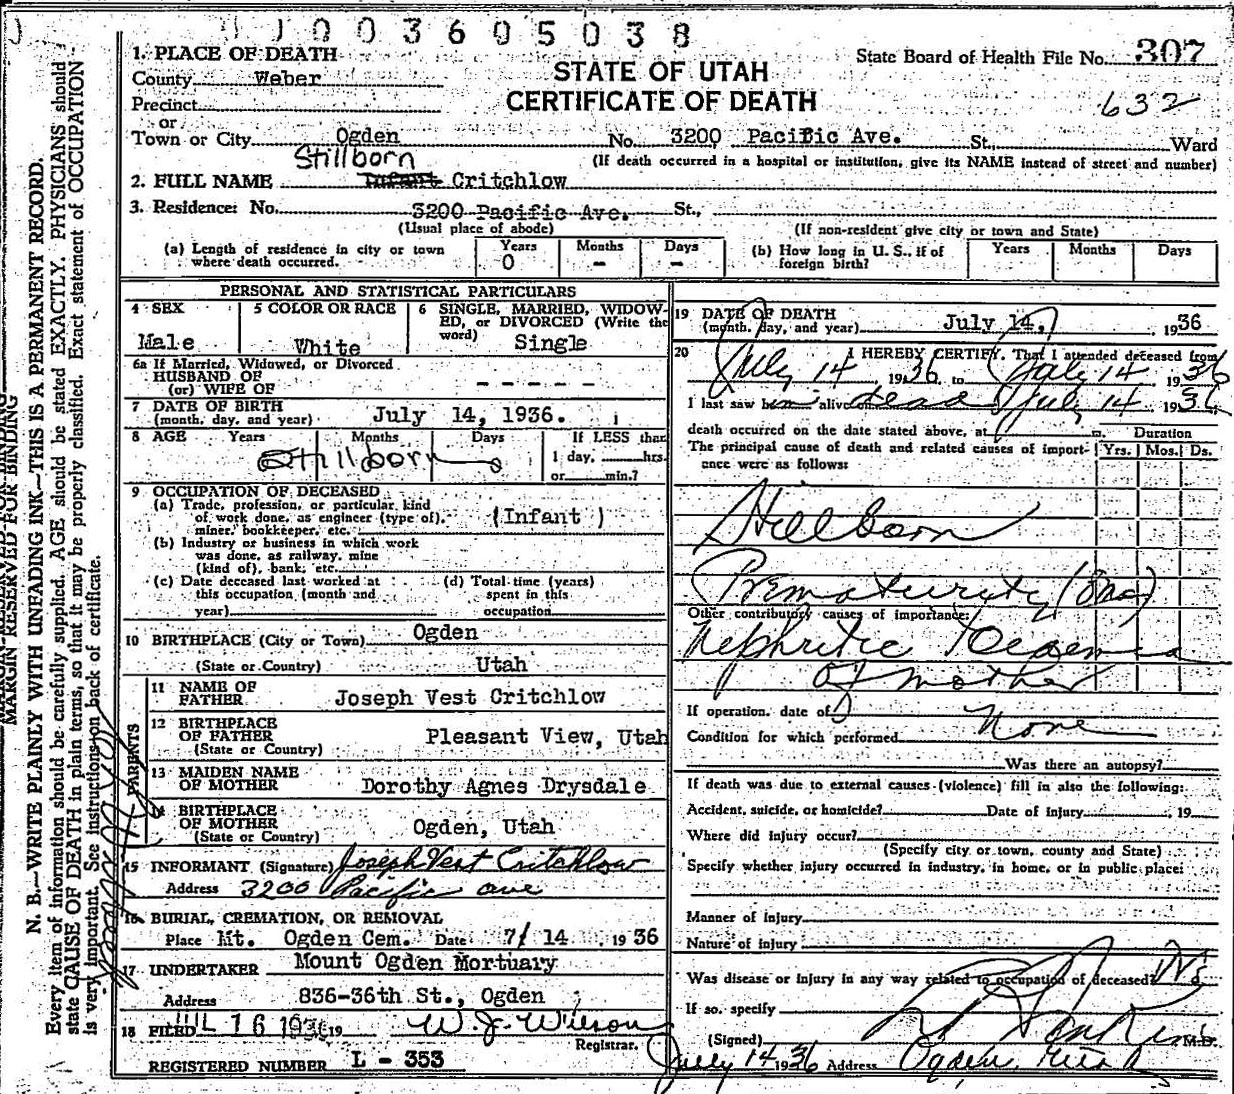 003605038
1. PLACE OF DEATH
State Board of Health File No. 307
County Weber
STATE OF UTAH
Precinct
CERTIFICATE OF DEATH
632
or
Town or City Ogden No. 3200 Pacific Ave. St., Ward
(If death occurred in a hospital or institution, give its NAME instead of street and number)
Stillborn
2. FULL NAME Infant Critchlow
3. Residence: No. 3200 Pacific Ave. St.,
(Usual place of abode) (If non-resident give city or town and State)
(a) Length of residence in city or town where death occurred. Years 0 Months - Days -
(b) How long in U. S., if of foreign birth? Years Months Days
PERSONAL AND STATISTICAL PARTICULARS
4 SEX Male
5 COLOR OR RACE White
6 SINGLE, MARRIED, WIDOWED, or DIVORCED (Write the word) Single
6a If Married, Widowed, or Divorced
HUSBAND OF
(or) WIFE OF - - - - - -
7 DATE OF BIRTH
(month, day, and year) July 14, 1936.
8 AGE Years Months Days If LESS than
Stillborn 1 day, hrs.
or min.?
9 OCCUPATION OF DECEASED
(a) Trade, profession, or particular kind
of work done, as engineer (type of), (Infant )
miner, bookkeeper, etc.
(b) Industry or business in which work
was done, as railway, mine
(kind of), bank, etc.
(c) Date deceased last worked at (d) Total time (years)
this occupation (month and spent in this
year) occupation
10 BIRTHPLACE (City or Town) Ogden
(State or Country) Utah
PARENTS
11 NAME OF
FATHER Joseph Vest Critchlow
12 BIRTHPLACE
OF FATHER Pleasant View, Utah
(State or Country)
13 MAIDEN NAME
OF MOTHER Dorothy Agnes Drysdale
14 BIRTHPLACE
OF MOTHER Ogden, Utah
(State or Country)
15 INFORMANT (Signature) Joseph Vest Critchlow
Address 3200 Pacific ave
16 BURIAL, CREMATION, OR REMOVAL
Place Mt. Ogden Cem. Date 7/ 14 , 1936
17 UNDERTAKER Mount Ogden Mortuary
Address 836-36th St., Ogden
18 FILED JUL 16 1936 19 W. J. Wilson
Registrar.
REGISTERED NUMBER L - 353
19 DATE OF DEATH
(month, day, and year) July 14, , 1936
20 I HEREBY CERTIFY, That I attended deceased from
July 14 1936 to July 14 1936
I last saw him alive on dead July 14 1936
death occurred on the date stated above, at m. Duration
The principal cause of death and related causes of importance were as follows: Yrs. Mos. Ds.
Stillborn
Prematurity (8mo)
Other contributory causes of importance:
Nephritic Toxemia
of mother
If operation, date of None
Condition for which performed
Was there an autopsy?
If death was due to external causes (violence) fill in also the following:
Accident, suicide, or homicide? Date of injury , 19
Where did injury occur?
(Specify city or town, county and State)
Specify whether injury occurred in industry, in home, or in public place:
Manner of injury
Nature of injury
Was disease or injury in any way related to occupation of deceased? No
If so, specify
(Signed) M.D.
July 14 1936 Address Ogden, Utah
MARGIN RESERVED FOR BINDING
N. B.—WRITE PLAINLY WITH UNFADING INK—THIS IS A PERMANENT RECORD.
Every item of information should be carefully supplied. AGE should be stated EXACTLY. PHYSICIANS should
state CAUSE OF DEATH in plain terms, so that it may be properly classified. Exact statement of OCCUPATION
is very important. See instructions on back of certificate.